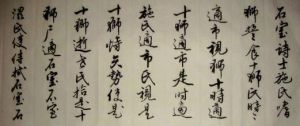 石室诗士施氏嗜
獅誓食十獅氏時々
適市視獅十時適
十獅適市是時適
施氏適市氏視是
十獅恃矢勢使是
十獅逝世氏拾是十
獅尸適石室石室
濕氏使侍拭石室石